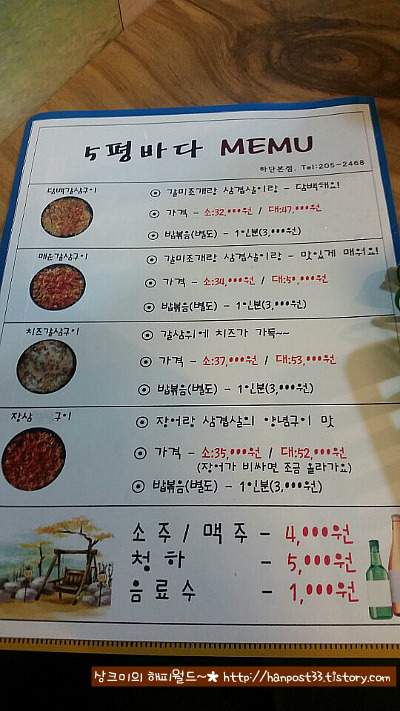 5평바다 MEMU
하단본점. Tel:205-2468
담백갈삼구이
⊙ 갈미조개랑 삼겹살이랑 - 담백해요!
⊙ 가격 - 소:32,000원 / 대:47,000원
⊙ 밥볶음(별도) - 1인분(3,000원)
매운갈삼구이
⊙ 갈미조개랑 삼겹살이랑 - 맛있게 매워요!
⊙ 가격 - 소:34,000원 / 대:50,000원
⊙ 밥볶음(별도) - 1인분(3,000원)
치즈갈삼구이
⊙ 갈삼위에 치즈가 가득~~
⊙ 가격 - 소:37,000원 / 대:53,000원
⊙ 밥볶음(별도) - 1인분(3,000원)
장삼 구이
⊙ 장어랑 삼겹살의 양념구이 맛
⊙ 가격 - 소:35,000원 / 대:52,000원
(장어가 비싸면 조금 올라가요)
⊙ 밥볶음(별도) - 1인분(3,000원)
소주/맥주 - 4,000원
청하 - 5,000원
음료수 - 1,000원
상크미의 해피월드~★ http://hanpost33.tistory.com